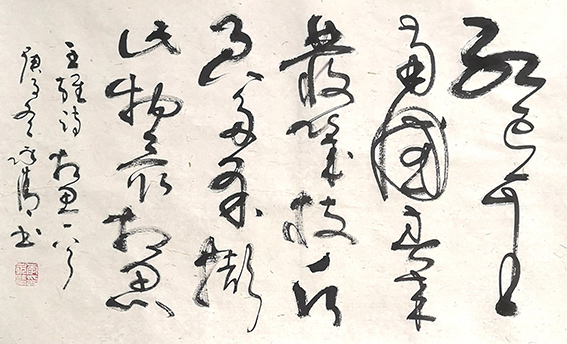 紅豆生
南國春來
發幾枝願
君多采擷
此物最相思
王維詩 相思一首
庚子冬 書